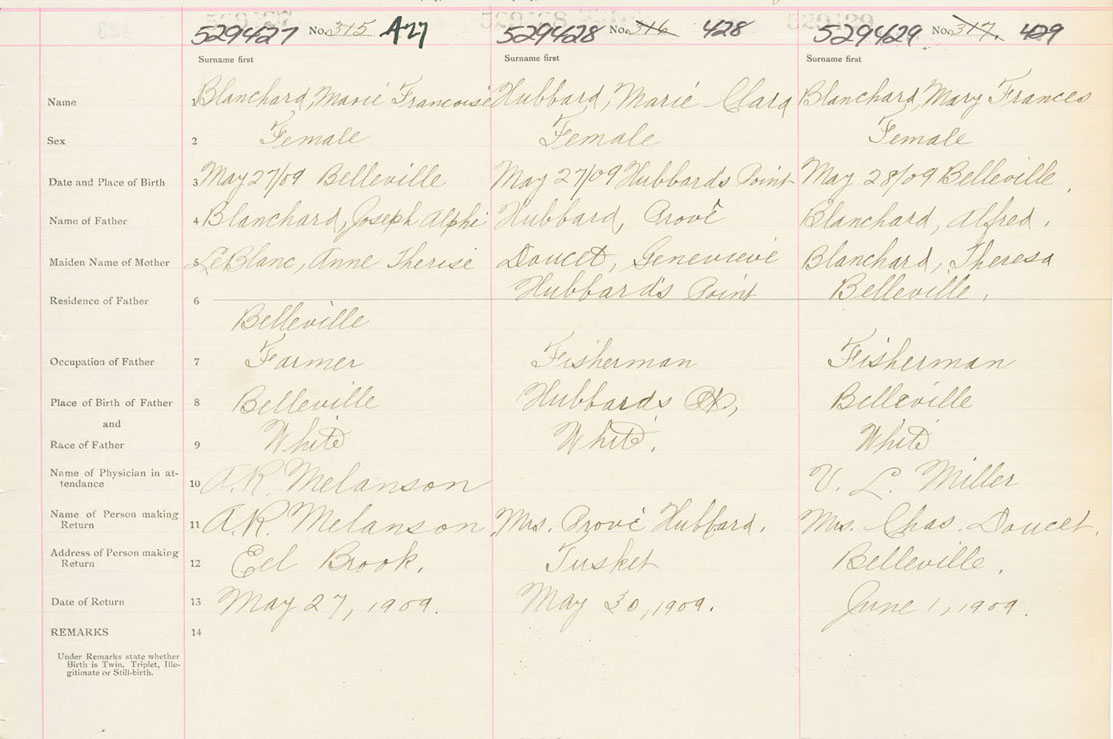 529427 No. 315 427 529428 No. 316 428 529429 No. 317 429
Surname first Surname first Surname first
Name 1 Blanchard, Marie Francoise Hubbard, Marie Clara Blanchard, Mary Frances
Sex 2 Female Female Female
Date and Place of Birth 3 May 27/09 Belleville May 27/09 Hubbard's Point May 28/09 Belleville.
Name of Father 4 Blanchard, Joseph Alphé Hubbard, Prové Blanchard, Alfred.
Maiden Name of Mother 5 LeBlanc, Anne Therise Doucet, Genevieve Blanchard, Theresa
Residence of Father 6 Belleville Hubbard's Point Belleville.
Occupation of Father 7 Farmer Fisherman Fisherman
Place of Birth of Father 8 Belleville Hubbards Pt, Belleville
and
Race of Father 9 White White. White
Name of Physician in at-
tendance 10 A.R. Melanson V. L. Miller
Name of Person making
Return 11 A.R. Melanson, Mrs. Prové Hubbard. Mrs. Chas. Doucet.
Address of Person making
Return 12 Eel Brook. Tusket Belleville.
Date of Return 13 May 27, 1909. May 30, 1909. June 1, 1909.
REMARKS 14
Under Remarks state whether
Birth is Twin, Triplet, Ille-
gitimate or Still-birth.